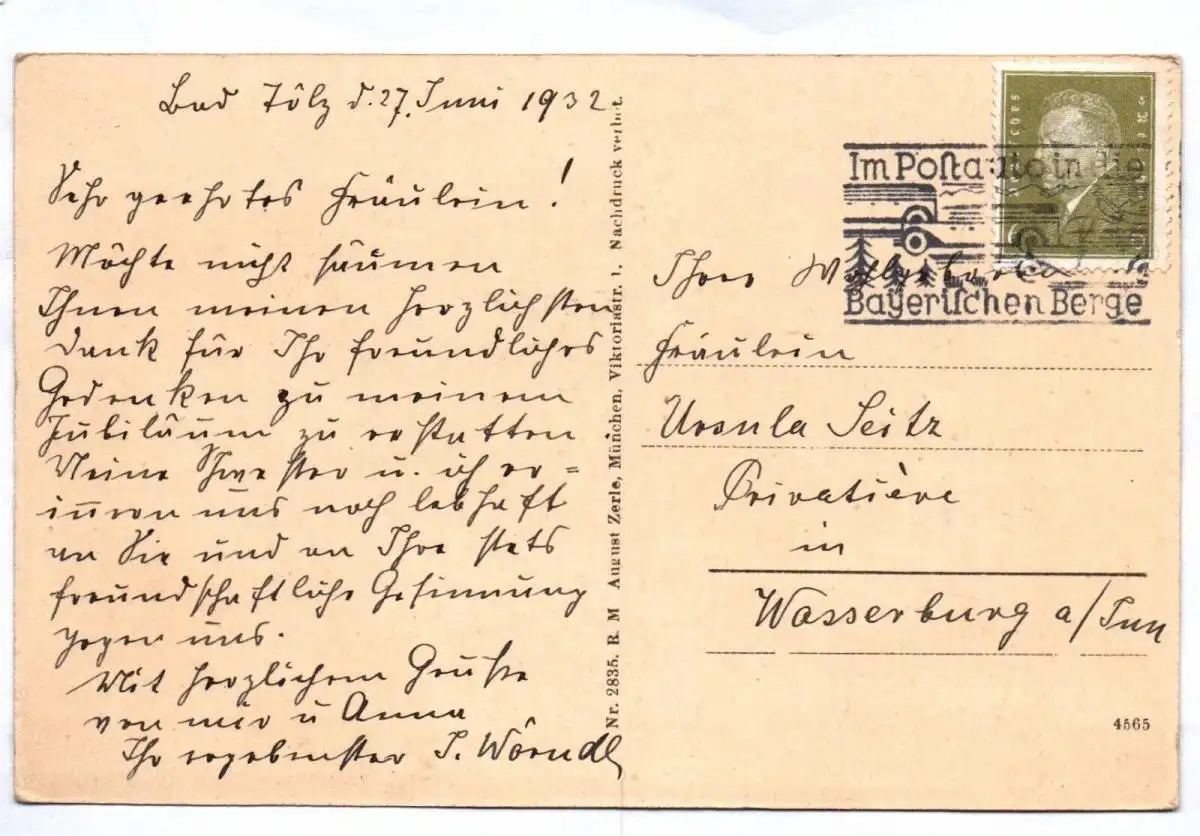 Bad Tölz d. 27. Juni 1932.
Sehr geehrtes Fräulein!
Möchte nicht säumen
Ihnen meinen herzlichsten
Dank für Ihr freundliches
Gedenken zu meinem
Jubiläum zu erstatten
Meine Schwester u. ich er=
innern uns noch lebhaft
an Sie und an Ihre stets
freundschaftliche Gesinnung
gegen uns.
Mit herzlichem Gruße
von mir u Anna
Ihr ergebenster J. Wörndl
Nr. 2835. R. M August Zerle, München, Viktoriastr. 1, Nachdruck verbot.
Im Postauto in die
Bayerischen Berge
Ihrer Wohlgeboren
Fräulein
Ursula Seitz
Privatière
in
Wasserburg a/Inn
4565